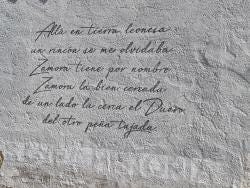 Allá en tierra leonesa
un rincón se me olvidaba
Zamora tiene por nombre
Zamora la bien cercada
de un lado la cerca el Duero
del otro peña tajada